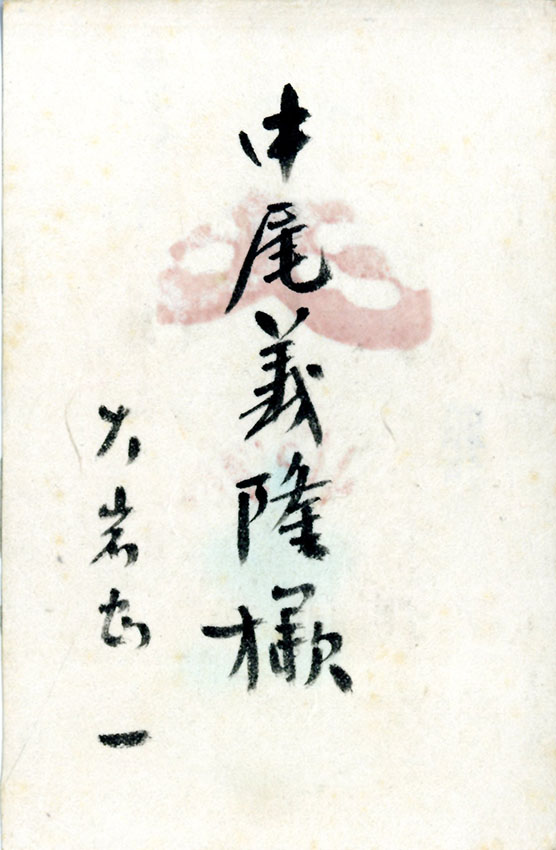 中尾義隆様
大岩
一